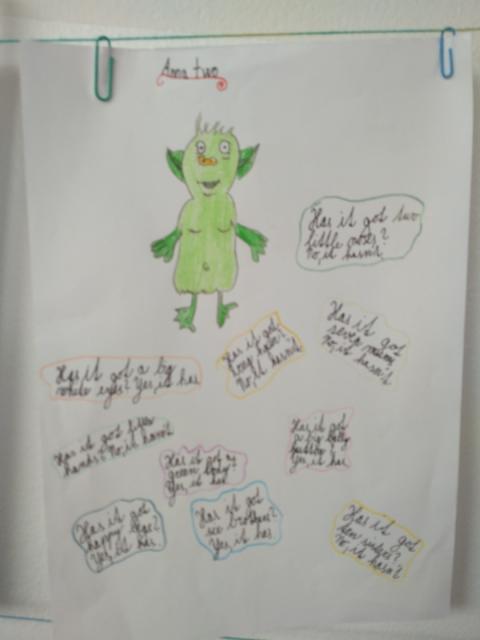 Anna two
Has it got two
little noses?
No, it hasn't
Has it got
long hair?
No, it hasn't
Has it got
seven
No, it hasn't
Has it got a big
white eyes? Yes, it has
Has it got
hands? No, it hasn't
Has it got a
green body?
Yes, it has
Has it got
a big belly
button?
Yes, it has
Has it got
happy
Yes, it has.
Has it got
brothers?
Yes, it has
Has it got
ten
No, it hasn't